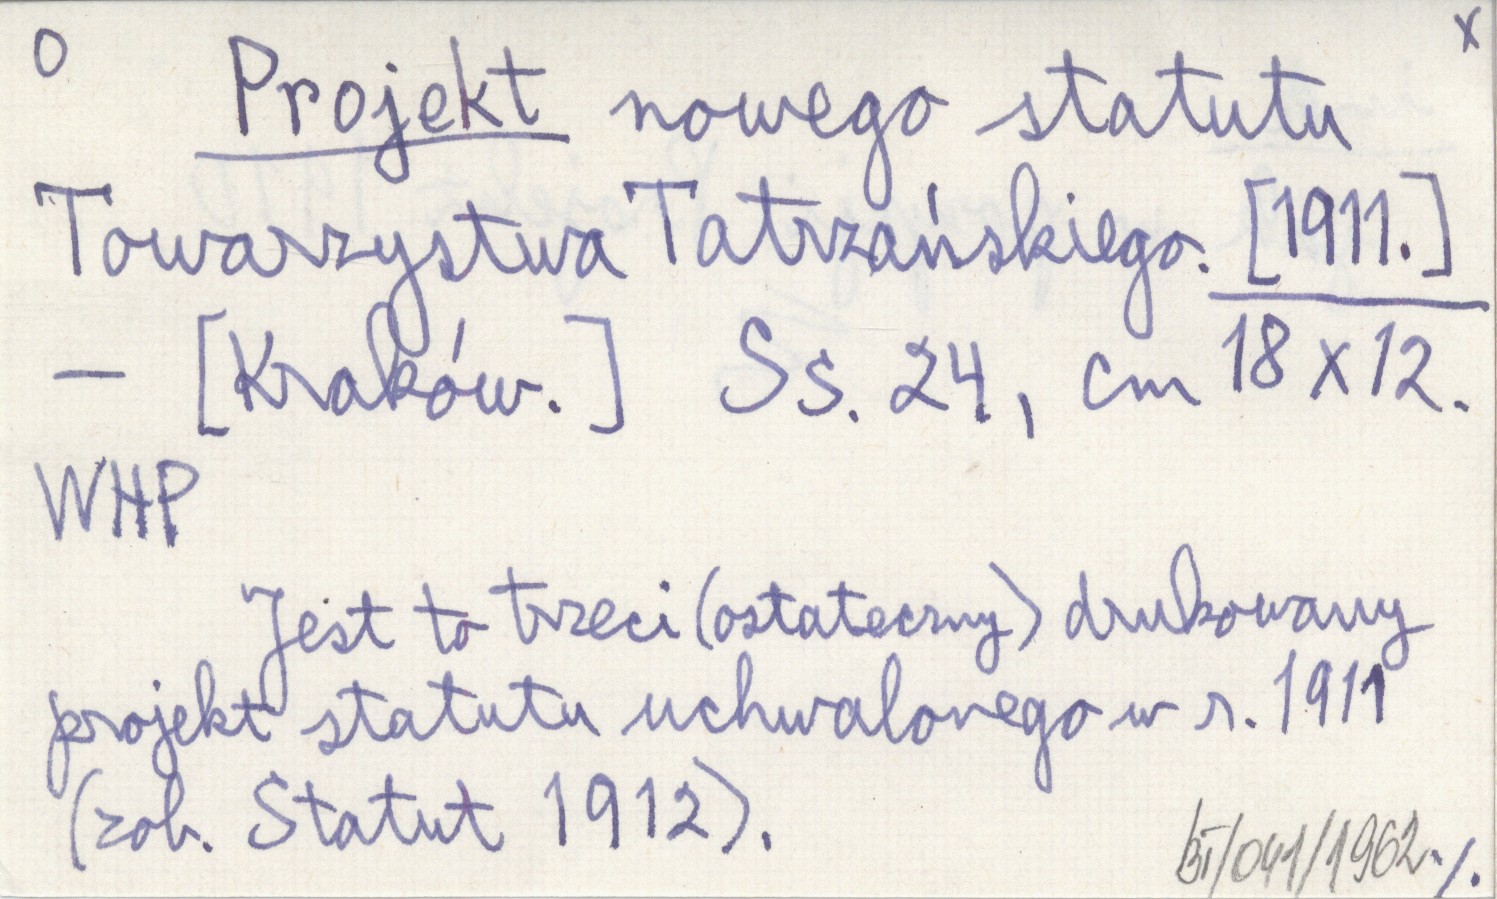 O x
Projekt nowego statutu
Towarzystwa Tatrzańskiego. [1911.]
— [Kraków.] Ss. 24, cm 18 x 12.
WHP
Jest to trzeci (ostateczny) drukowany
projekt statutu uchwalonego w r. 1911
(zob. Statut 1912).
BT/041/1962 ./.